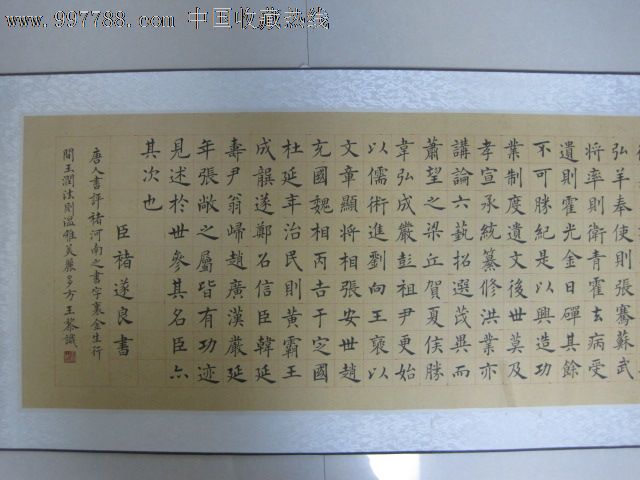 www.997788.com 中国收藏热线
弘羊奉使則張騫蘇武
將率則衛青霍去病受
遺則霍光金日磾其餘
不可勝紀是以興造功
業制度遺文後世莫及
孝宣承統纂修洪業亦
講論六藝招選茂異而
蕭望之梁丘賀夏侯勝
韋弘成嚴彭祖尹更始
以儒術進劉向王襃以
文章顯將相張安世趙
充國魏相丙吉于定國
杜延年治民則黄霸王
成龔遂鄭名信臣韓延
壽尹翁歸趙廣漢嚴延
年張敞之屬皆有功迹
見述於世參其名臣亦
其次也
臣褚遂良書
唐人書評褚河南之書字裏金生行
間玉潤法則溫雅美麗多方王黎識